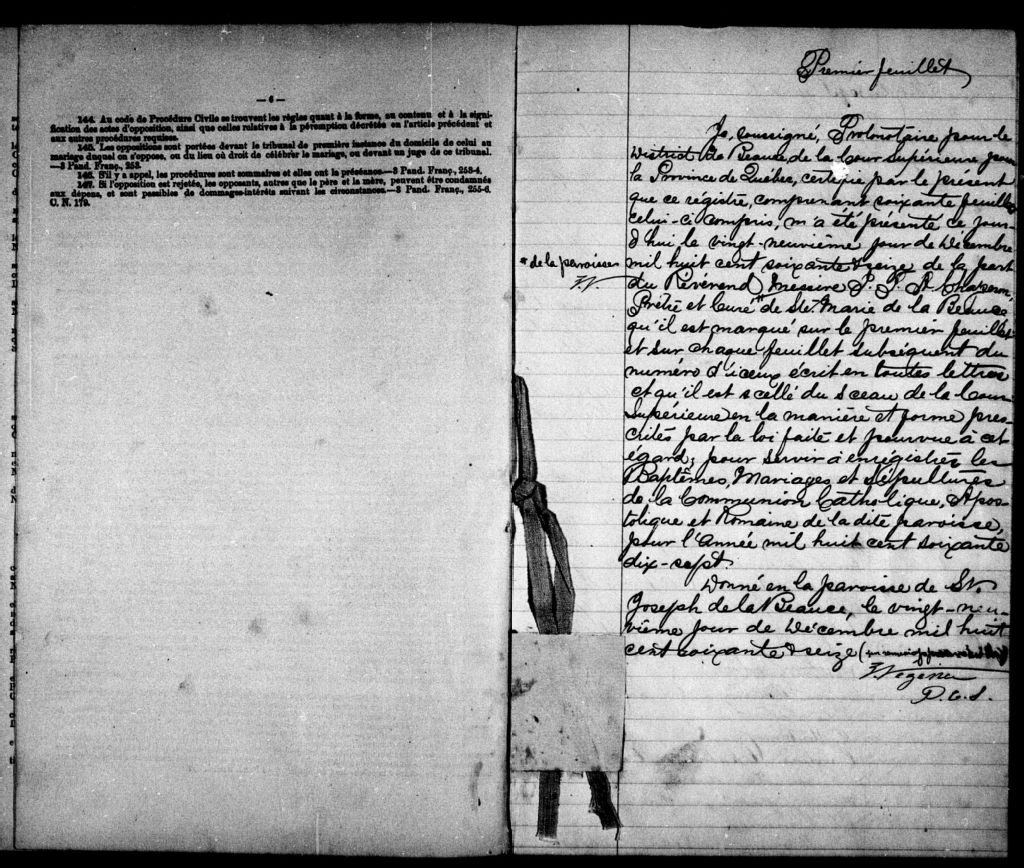 — 6 —
144. Au code de Procédure Civile se trouvent les règles quant à la forme, au contenu et à la signi-
fication des actes d'opposition, ainsi que celles relatives à la péremption décrétée en l'article précédent et
aux autres procédures requises.
145. Les oppositions sont portées devant le tribunal de première instance du domicile de celui au
mariage duquel on s'oppose, ou du lieu où droit de célébrer le mariage, ou devant un juge de ce tribunal.
—3 Pand. Franç., 253.
146. S'il y a appel, les procédures sont sommaires et elles ont la préséance.—3 Pand. Franç., 253-4.
147. Si l'opposition est rejetée, les opposants, autres que le père et la mère, peuvent être condamnés
aux dépens, et sont passibles de dommages-intérêts suivant les circonstances.—3 Pand. Franç., 255-6.
C. N. 179.
Premier feuillet
Je, soussigné, Protonotaire pour le
District de Beauce, de la Cour Supérieure pour
la Province de Québec, certifie par le présent
que ce régistre, comprenant soixante feuillets
celui-ci compris, m'a été présenté ce jour-
d'hui le vingt-neuvième jour de Décembre
* de la paroisse
mil huit cent soixante & seize de la part
du Révérend Messire J.
Prêtre et Curé * de Ste Marie de la Beauce
qu'il est marqué sur le premier feuillet
et sur chaque feuillet subséquent du
numéro d'iceux écrit en toutes lettres
et qu'il est scellé du sceau de la Cour
Supérieure en la manière et forme pres-
crites par la loi faite et pourvue à cet
égard; pour servir à enrégistrer les
Baptêmes, Mariages et Sépultures
de la Communion Catholique, Apos-
tolique et Romaine de la dite paroisse,
pour l'Année mil huit cent soixante
dix-sept.
Donné en la paroisse de St.
Joseph de la Beauce, le vingt-neu-
vième jour de Décembre mil huit
cent soixante & seize
P.C.S.